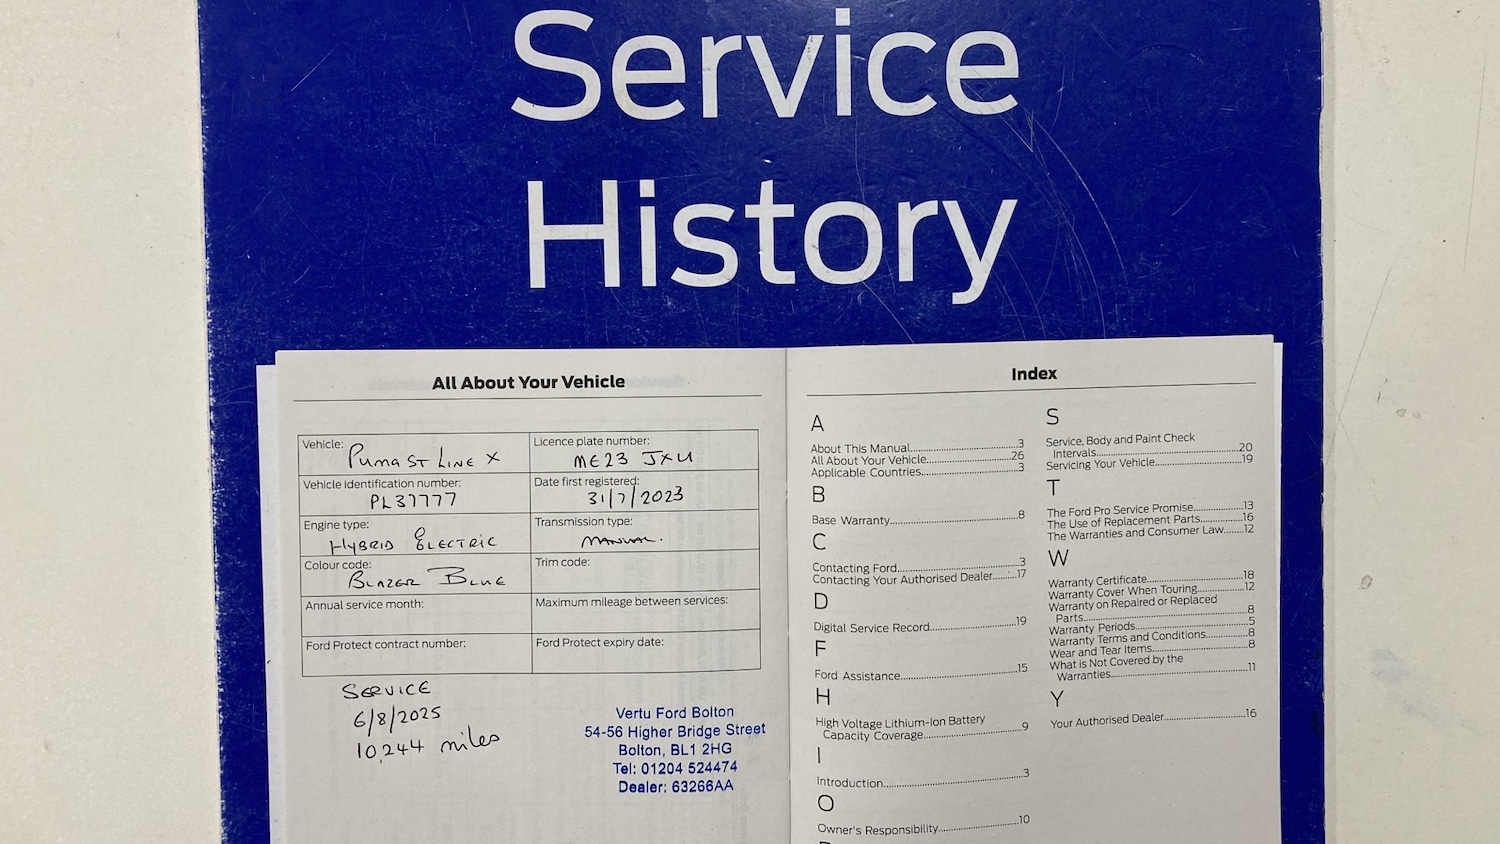 Service
History
All About Your Vehicle
Vehicle: Puma ST Line X
Licence plate number: ME23 JXU
Vehicle identification number: PL37777
Date first registered: 31/7/2023
Engine type: Hybrid Electric
Transmission type: Manual.
Colour code: Blazer Blue
Trim code:
Annual service month:
Maximum mileage between services:
Ford Protect contract number:
Ford Protect expiry date:
Service
6/8/2025
10,244 miles
Vertu Ford Bolton
54-56 Higher Bridge Street
Bolton, BL1 2HG
Tel: 01204 524474
Dealer: 63266AA
Index
A
About This Manual...3
All About Your Vehicle...26
Applicable Countries...3
B
Base Warranty...8
C
Contacting Ford...3
Contacting Your Authorised Dealer...17
D
Digital Service Record...19
F
Ford Assistance...15
H
High Voltage Lithium-Ion Battery
Capacity Coverage...9
I
Introduction...3
O
Owner's Responsibility...10
S
Service, Body and Paint Check
Intervals...20
Servicing Your Vehicle...19
T
The Ford Pro Service Promise...13
The Use of Replacement Parts...16
The Warranties and Consumer Law...12
W
Warranty Certificate...18
Warranty Cover When Touring...12
Warranty on Repaired or Replaced
Parts...8
Warranty Periods...5
Warranty Terms and Conditions...8
Wear and Tear Items...8
What is Not Covered by the
Warranties...11
Y
Your Authorised Dealer...16